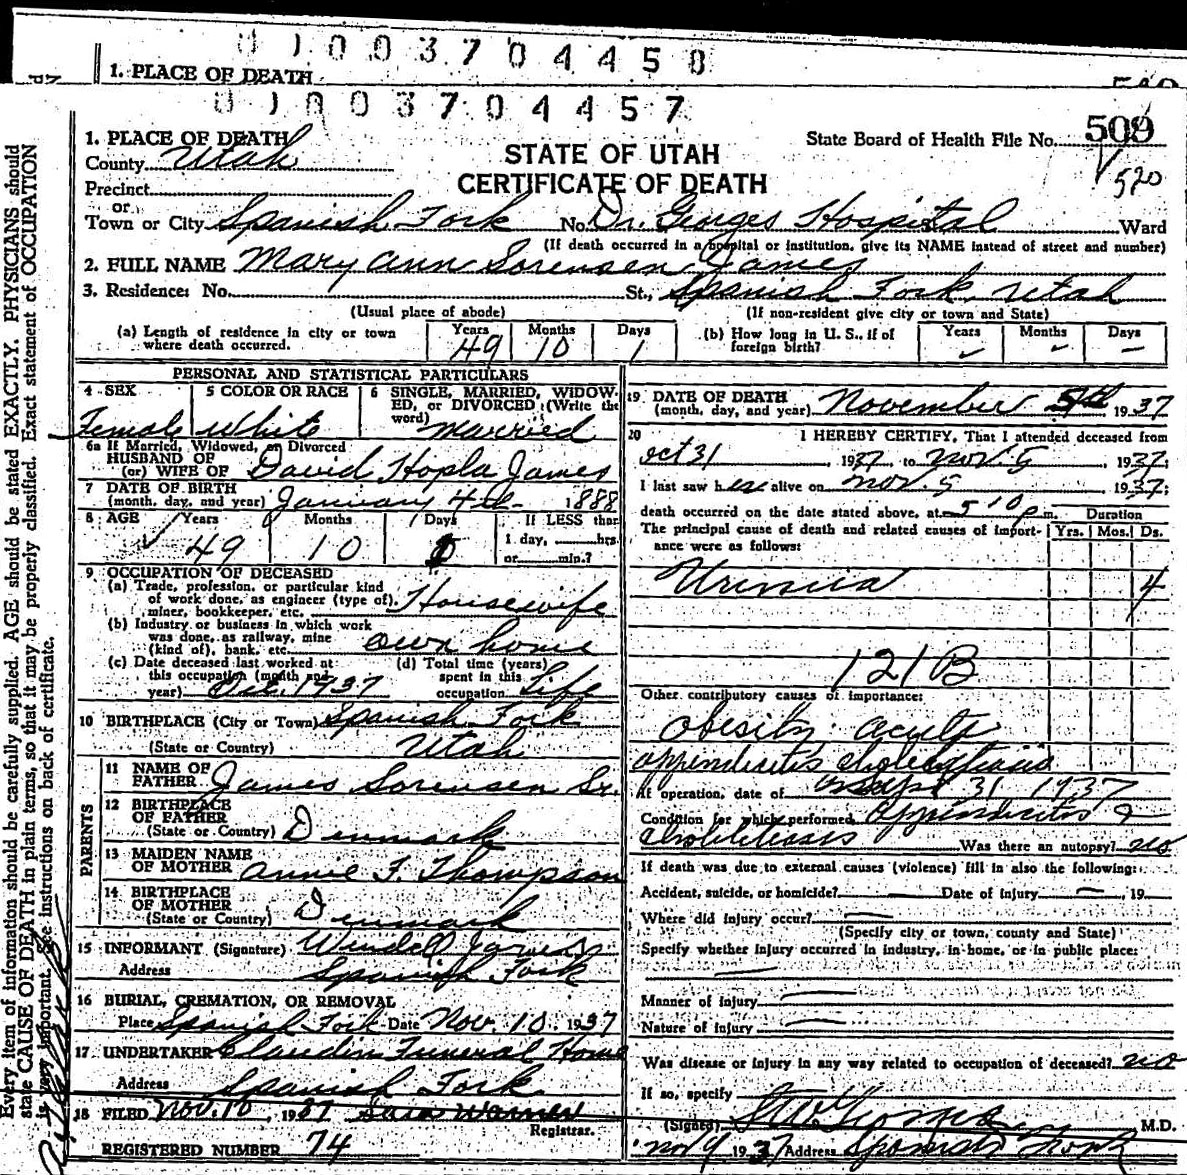 0 1 0 0 3 7 0 4 4 5 8
1. PLACE OF DEATH
0 1 0 0 3 7 0 4 4 5 7
1. PLACE OF DEATH
County Utah
Precinct
or
Town or City Spanish Fork No. Dr. Georges Hospital Ward
(If death occurred in a hospital or institution, give its NAME instead of street and number)
STATE OF UTAH
CERTIFICATE OF DEATH
State Board of Health File No. 509
520
2. FULL NAME Mary Ann Sorensen James
3. Residence: No. St., Spanish Fork, Utah
(Usual place of abode) (If non-resident give city or town and State)
(a) Length of residence in city or town where death occurred. Years 49 Months 10 Days 1
(b) How long in U. S., if of foreign birth? Years – Months – Days –
PERSONAL AND STATISTICAL PARTICULARS
4 SEX Female
5 COLOR OR RACE White
6 SINGLE, MARRIED, WIDOWED, or DIVORCED (Write the word) Married
6a If Married, Widowed, or Divorced
HUSBAND OF
(or) WIFE OF David Hopla James
7 DATE OF BIRTH
(month, day, and year) January 4th 1888
8 AGE Years 49 Months 10 Days
If LESS than 1 day, hrs. or min.?
9 OCCUPATION OF DECEASED
(a) Trade, profession, or particular kind of work done, as engineer (type of), miner, bookkeeper, etc. Housewife
(b) Industry or business in which work was done, as railway, mine (kind of), bank, etc. own home
(c) Date deceased last worked at this occupation (month and year) Oct. 1937
(d) Total time (years) spent in this occupation Life
10 BIRTHPLACE (City or Town) Spanish Fork
(State or Country) Utah
PARENTS
11 NAME OF FATHER James Sorensen Sr.
12 BIRTHPLACE OF FATHER
(State or Country) Denmark
13 MAIDEN NAME OF MOTHER Annie F. Thompson
14 BIRTHPLACE OF MOTHER
(State or Country) Denmark
15 INFORMANT (Signature) Wendell James
Address Spanish Fork
16 BURIAL, CREMATION, OR REMOVAL
Place Spanish Fork Date Nov. 10, 1937
17 UNDERTAKER Claudin Funeral Home
Address Spanish Fork
18 FILED Nov. 10, 1937 Warner
Registrar.
REGISTERED NUMBER 74
19 DATE OF DEATH
(month, day, and year) November 5th 1937
20 I HEREBY CERTIFY, That I attended deceased from
Oct 31, 1937, to Nov. 5, 1937;
I last saw her alive on Nov. 5 1937;
death occurred on the date stated above, at 5 10 p m.
Duration
The principal cause of death and related causes of importance were as follows: Yrs. Mos. Ds.
Urimia 4
121B
Other contributory causes of importance:
Obesity acute
appendicitis
At operation, date of 31 1937
Condition for which performed Appendicitis &
Was there an autopsy? no
If death was due to external causes (violence) fill in also the following:
Accident, suicide, or homicide? — Date of injury — , 19
Where did injury occur? —
(Specify city or town, county and State)
Specify whether injury occurred in industry, in home, or in public place:
—
Manner of injury —
Nature of injury —
Was disease or injury in any way related to occupation of deceased? no
If so, specify
(Signed) M.D.
Nov 9 1937 Address Spanish Fork
Every item of information should be carefully supplied. AGE should be stated EXACTLY. PHYSICIANS should
state CAUSE OF DEATH in plain terms, so that it may be properly classified. Exact statement of OCCUPATION
is very important. See instructions on back of certificate.